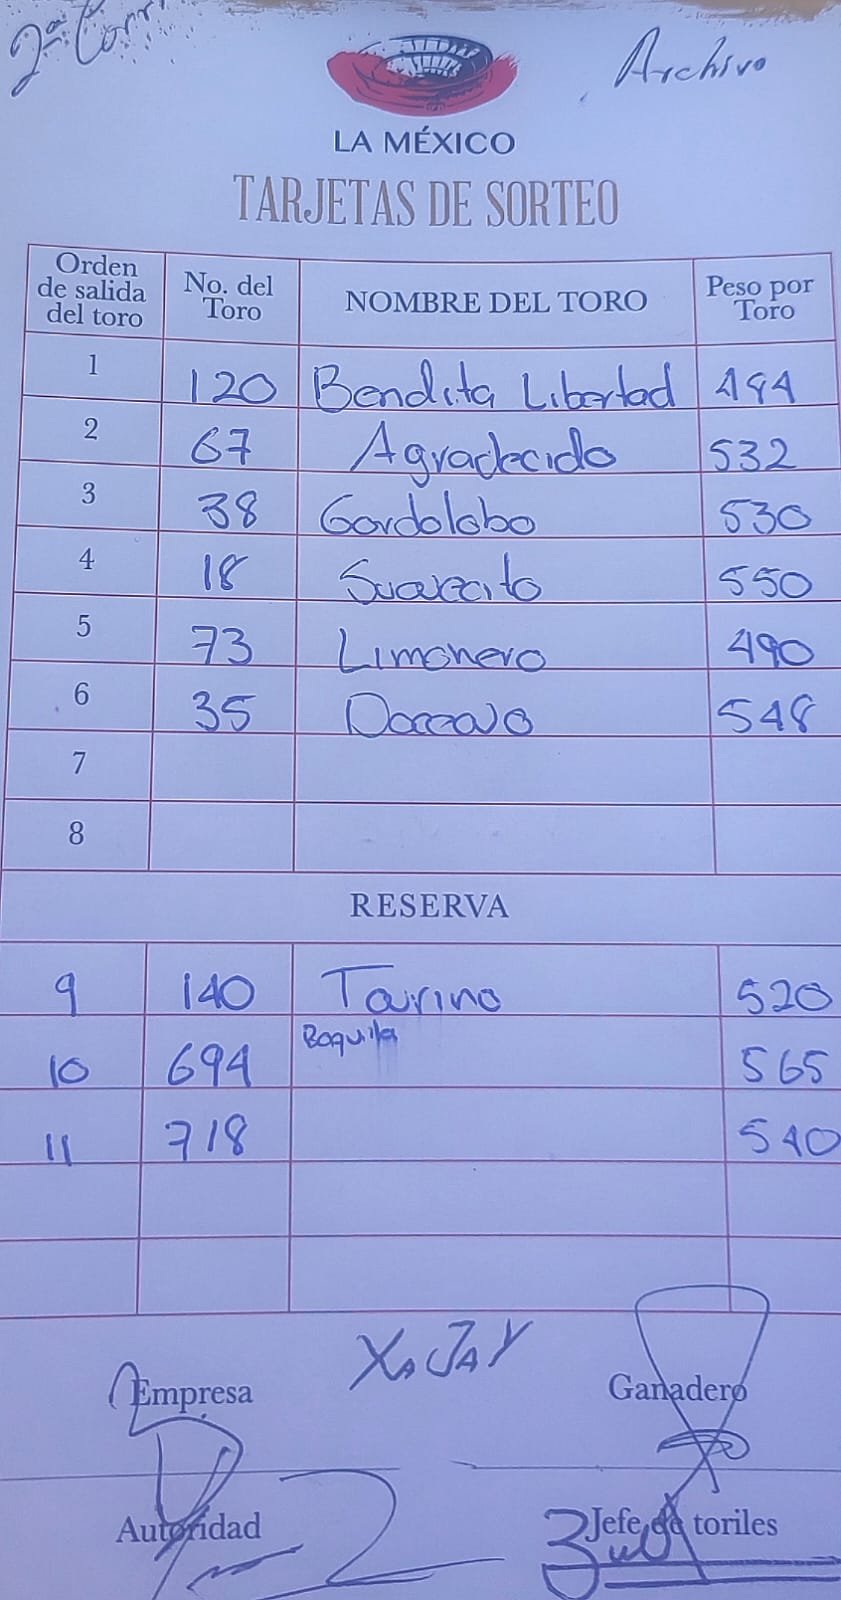 2ª Corr
Archivo
LA MÉXICO
TARJETAS DE SORTEO
Orden de salida del toro No. del Toro NOMBRE DEL TORO Peso por Toro
1 120 Bendita Libertad 494
2 67 Agradecido 532
3 38 Gordolobo 530
4 18 Suavecito 550
5 73 Limonero 490
6 35 548
7
8
RESERVA
9 140 Taurino 520
10 694 Boquilla 565
11 718 540
XAJAY
Empresa Ganadero
Autoridad Jefe de toriles